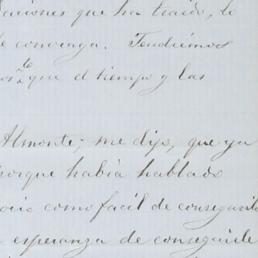 ciones que ha traido, lo
le convenga. Tendremos
lo
que el tiempo y las
Almonte; me dijo, que ya
porque había hablado
ocio como facil de conseguirlo
esperanza de conseguirle